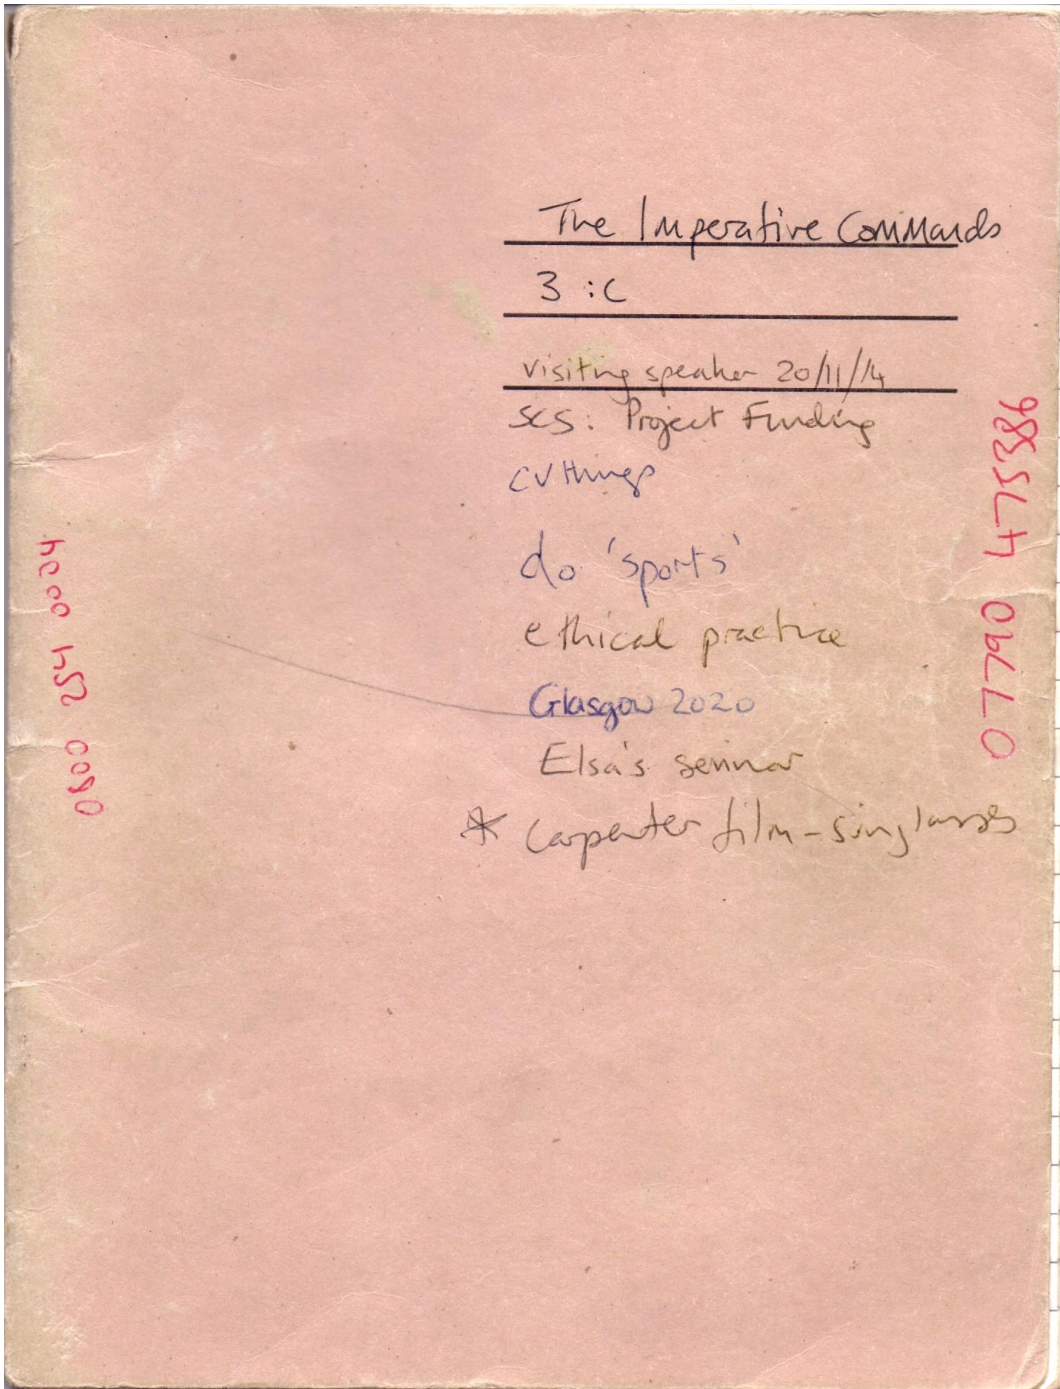 The Imperative Commands
3 :C
visiting speaker 20/11/14
SCS: Project Funding
CV things
do 'sports'
ethical practice
Glasgow 2020
Elsa's seminar
* Carpenter film - sunglasses
0800 254 0004
07790 475386